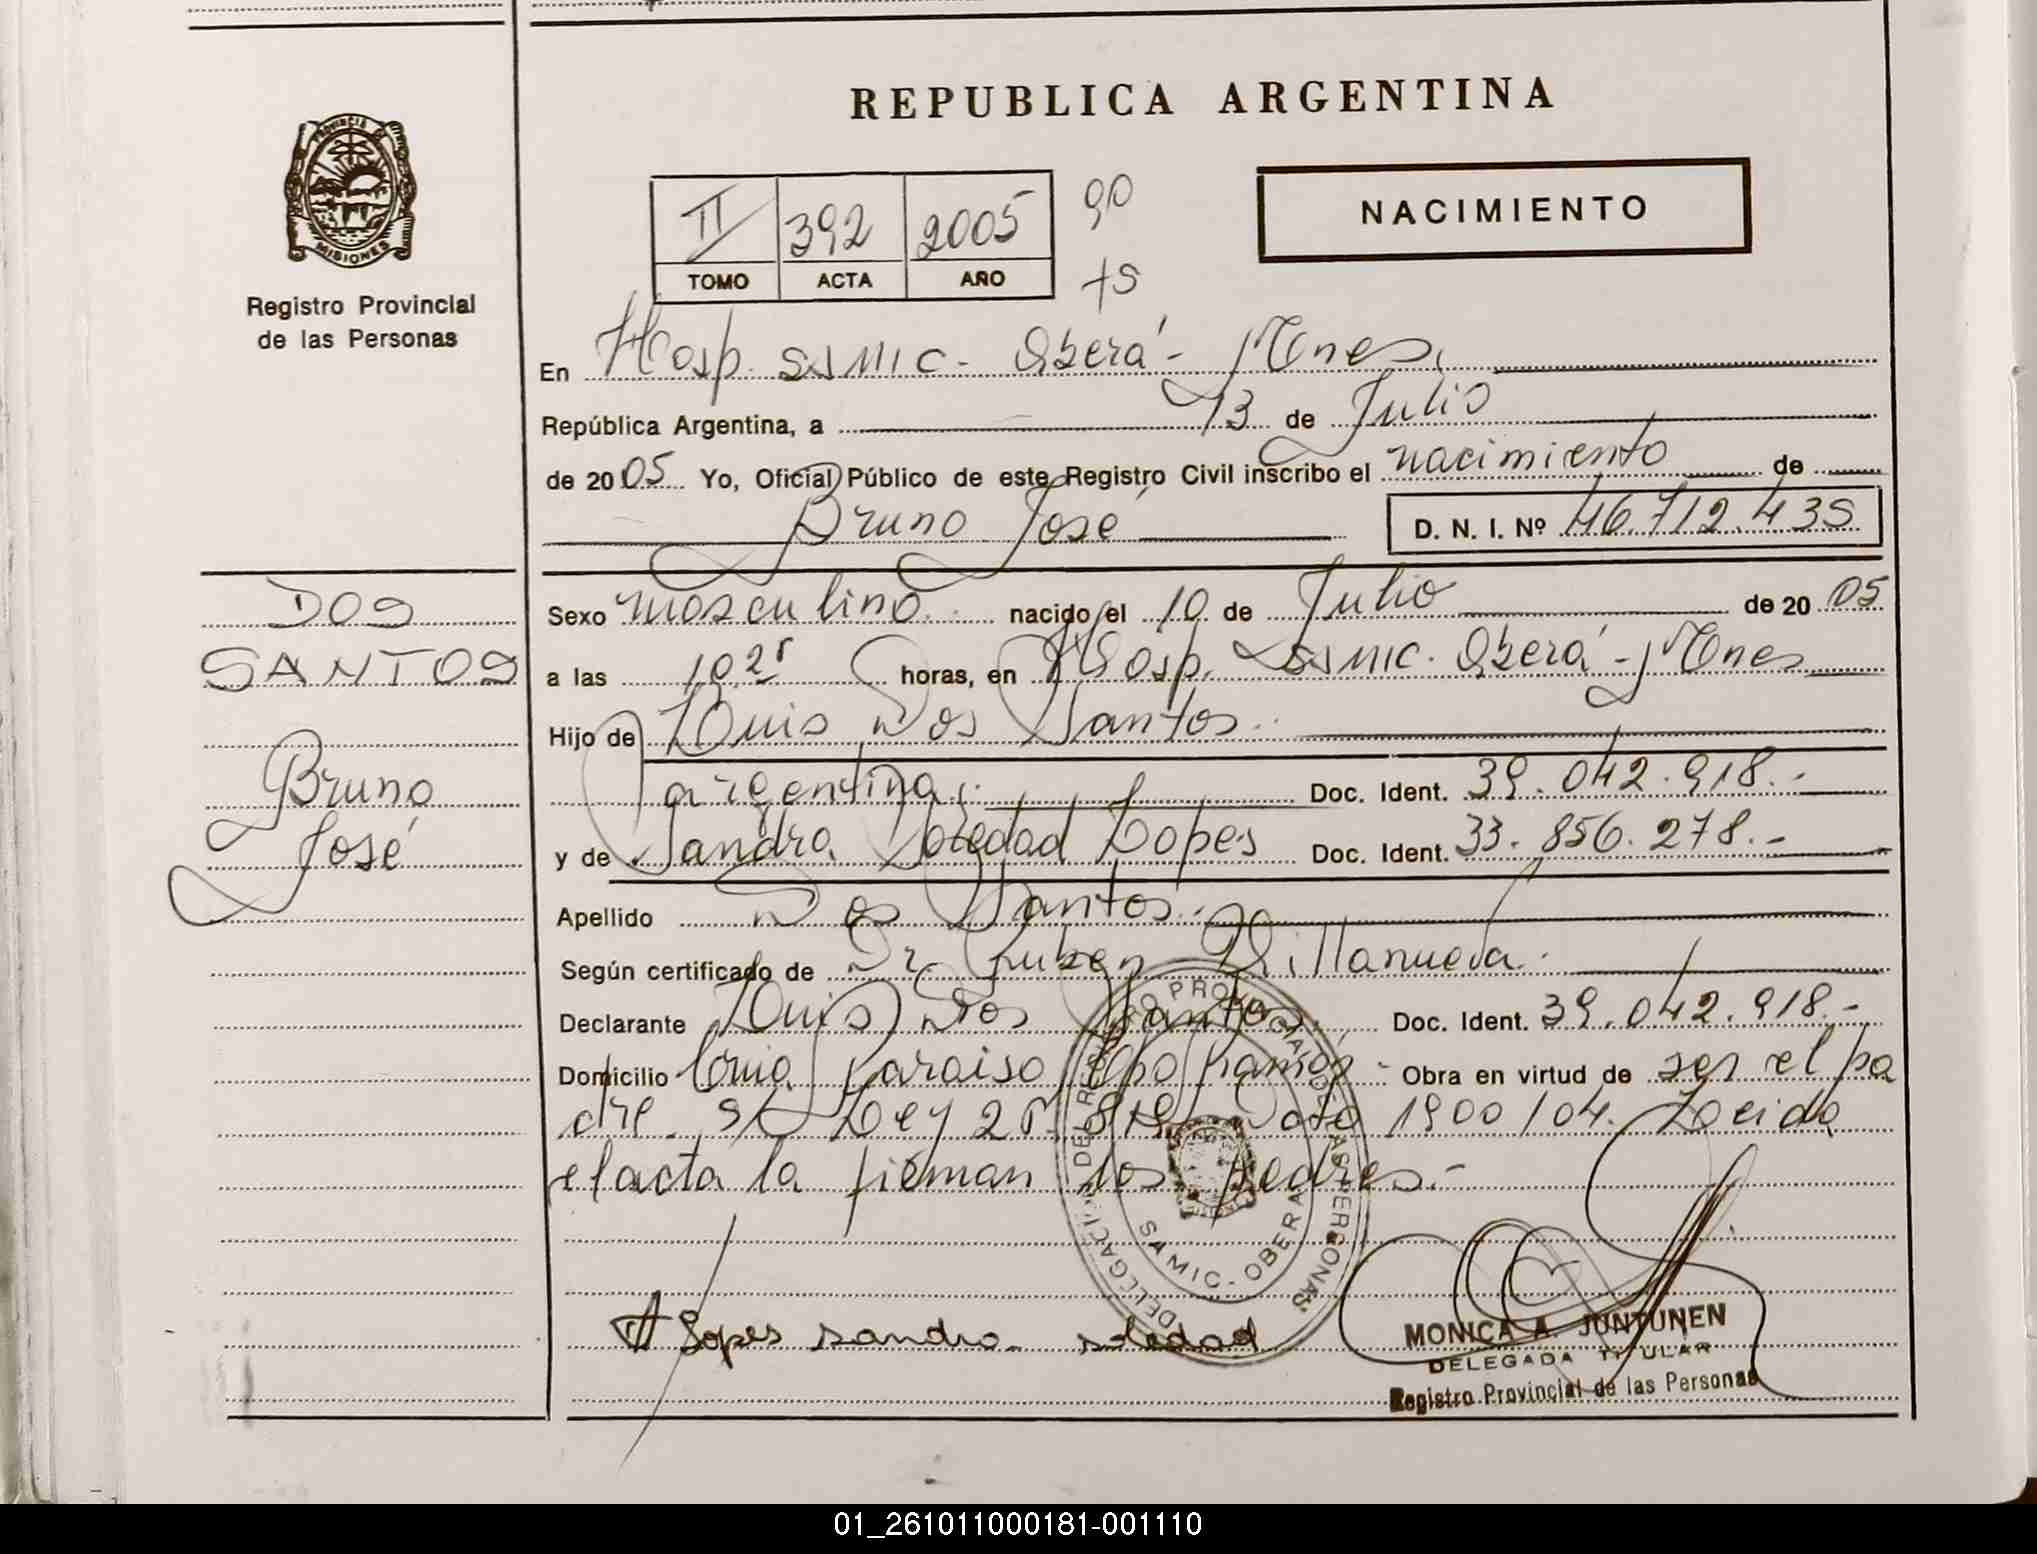 REPUBLICA ARGENTINA
PROVINCIA DE
MISIONES
Registro Provincial
de las Personas
II 392 2005
TOMO ACTA AÑO
NACIMIENTO
En Hosp. SAMIC - Oberá - Mnes.
República Argentina, a 13 de Julio
de 2005 Yo, Oficial Público de este Registro Civil inscribo el nacimiento de
Bruno José D. N. I. Nº 46.712.435
DOS
SANTOS
Bruno
José
Sexo masculino. nacido el 10 de Julio de 2005
a las 10,25 horas, en Hosp. SAMIC. Oberá - Mnes
Hijo de Luis Dos Santos.
argentina. Doc. Ident. 39.042.918.-
y de Sandra Soledad Lopes Doc. Ident. 33.856.278.-
Apellido Dos Santos.
Según certificado de Dr. Ruben Villanueva.
Declarante Luis Dos Santos. Doc. Ident. 39.042.918.-
Domicilio Cnia Paraiso Obra en virtud de ser el pa
dre. S/ Ley 25.819 Dto 1900/04. Leida
el acta la firman los padres.-
DELEGACION DEL REGISTRO PROVINCIAL DE LAS PERSONAS
SAMIC - OBERA
Lopes sandra soledad
MONICA A. JUNTUNEN
DELEGADA TITULAR
Registro Provincial de las Personas
01_261011000181-001110